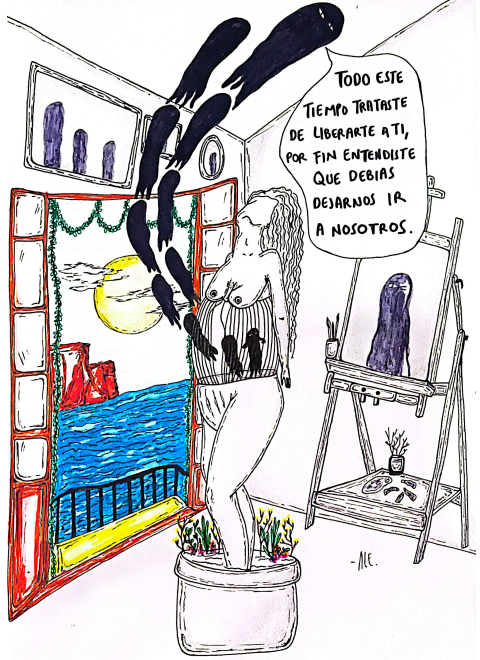 TODO ESTE
TIEMPO TRATASTE
DE LIBERARTE A TI,
POR FIN ENTENDISTE
QUE DEBIAS
DEJARNOS IR
A NOSOTROS.
-ALE.